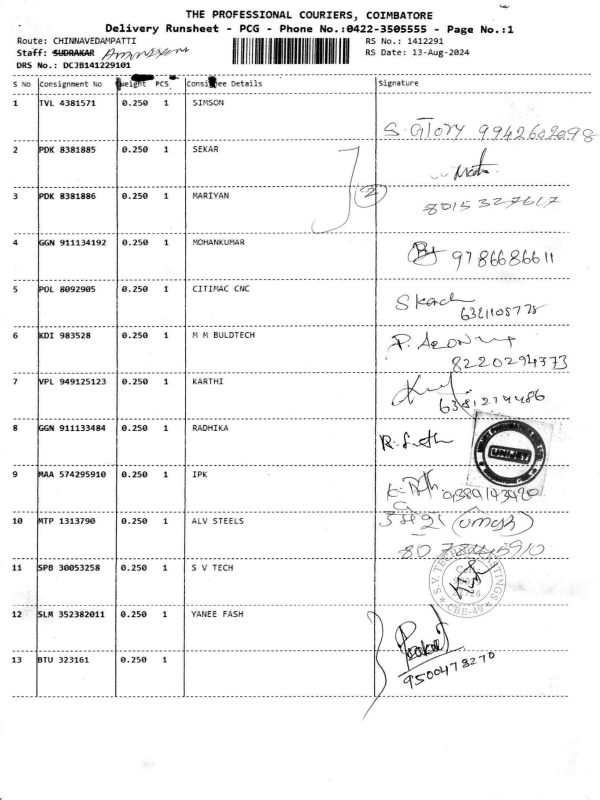 THE PROFESSIONAL COURIERS, COIMBATORE
Delivery Runsheet - PCG - Phone No.:0422-3505555 - Page No.:1
Route: CHINNAVEDAMPATTI RS No.: 1412291
Staff: SUDRAKAR RS Date: 13-Aug-2024
DRS No.: DCJB141229101
S No Consignment No Weight PCS Consignee Details Signature
1 TVL 4381571 0.250 1 SIMSON
S. Glory 9942602098
2 PDK 8381885 0.250 1 SEKAR
2
3 PDK 8381886 0.250 1 MARIYAN
8015327617
4 GGN 911134192 0.250 1 MOHANKUMAR
9786686611
5 POL 8092905 0.250 1 CITIMAC CNC
6 KDI 983528 0.250 1 M M BULDTECH
8220294773
7 VPL 949125123 0.250 1 KARTHI
6381274486
8 GGN 911133484 0.250 1 RADHIKA
9 MAA 574295910 0.250 1 IPK
10 MTP 1313790 0.250 1 ALV STEELS
11 SPB 30053258 0.250 1 S V TECH
CBE-49
12 SLM 352382011 0.250 1 YANEE FASH
13 BTU 323161 0.250 1
9500478270